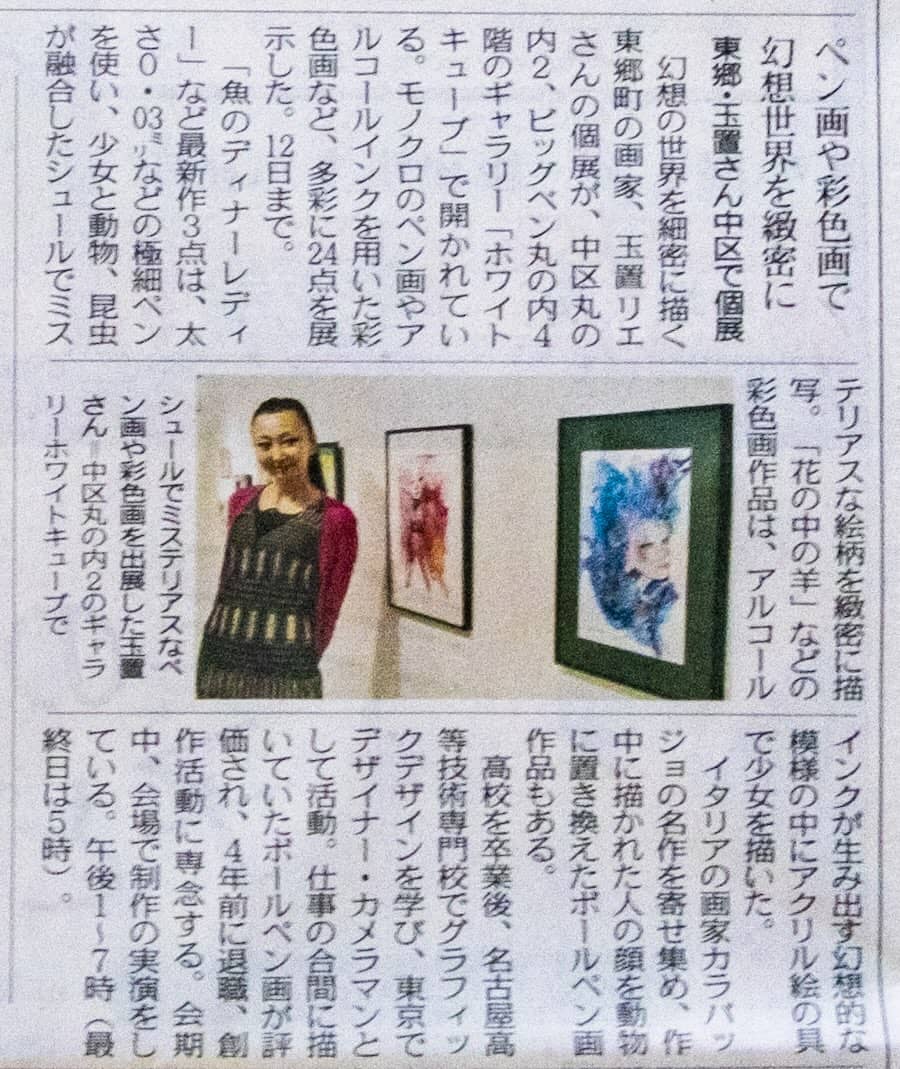 ペン画や彩色画で
幻想世界を緻密に
東郷・玉置さん中区で個展
幻想の世界を細密に描く
東郷町の画家、玉置リエ
さんの個展が、中区丸の
内2、ビッグペン丸の内4
階のギャラリー「ホワイト
キューブ」で開かれてい
る。モノクロのペン画やア
ルコールインクを用いた彩
色画など、多彩に24点を展
示した。12日まで。
「魚のディナーレディ
ー」など最新作3点は、太
さ0・03㍉などの極細ペン
を使い、少女と動物、昆虫
が融合したシュールでミス
テリアスな絵柄を緻密に描
写。「花の中の羊」などの
彩色画作品は、アルコール
シュールでミステリアスなペ
ン画や彩色画を出展した玉置
さん=中区丸の内2のギャラ
リーホワイトキューブで
インクが生み出す幻想的な
模様の中にアクリル絵の具
で少女を描いた。
イタリアの画家カラバッ
ジョの名作を寄せ集め、作
中に描かれた人の顔を動物
に置き換えたボールペン画
作品もある。
高校を卒業後、名古屋高
等技術専門校でグラフィッ
クデザインを学び、東京で
デザイナー・カメラマンと
して活動。仕事の合間に描
いていたボールペン画が評
価され、4年前に退職、創
作活動に専念する。会期
中、会場で制作の実演をし
ている。午後1~7時(最
終日は5時)。